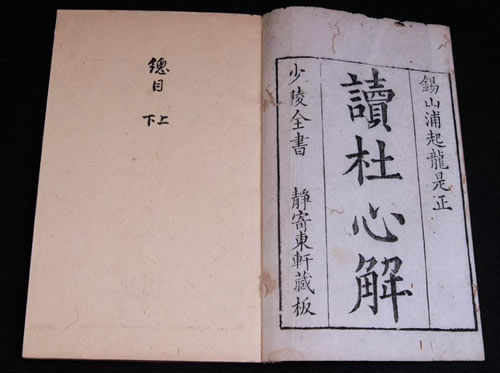 錫山浦起龍是正
讀杜心解
少陵全書 靜寄東軒藏板
總目
上
下